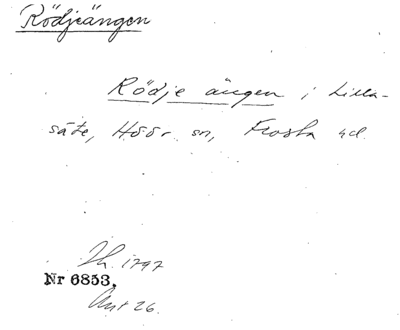 Rödjeängen
Rödje ängen i Lilla-
säte, Höör sn, Frosta hd.
1797
Nr 6853.
26.